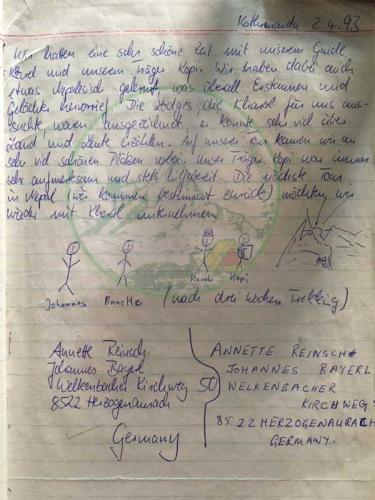 Kathmandu 2.4.93
Wir hatten eine sehr schöne Zeit mit unserem Guide
und unserem Träger Kopi. Wir haben dabei auch
etwas Nepalesisch gelernt, was überall Erstaunen und
Gelächter hervorrief. Die Lodges, die Kharel für uns aus-
suchte waren ausgezeichnet, er konnte sehr viel über
Land und Leute erzählen. Auf unserer Tour kamen wir an
sehr viel schönen Plätzen vorbei. Unser Träger Kopi war immer
sehr aufmerksam und stets hilfsbereit. Die nächste Tour
in Nepal (wir kommen bestimmt zurück) möchten wir
wieder mit Kharel unternehmen.
Johannes Annette Kopi
(nach drei Wochen Trekking)
Annette Reinsch
Johannes Bayerl
Welkenbacher Kirchweg 50
8522 Herzogenaurach
Germany
ANNETTE REINSCH
JOHANNES BAYERL
WELKENBACHER
KIRCHWEG
8522 HERZOGENAURACH
GERMANY.